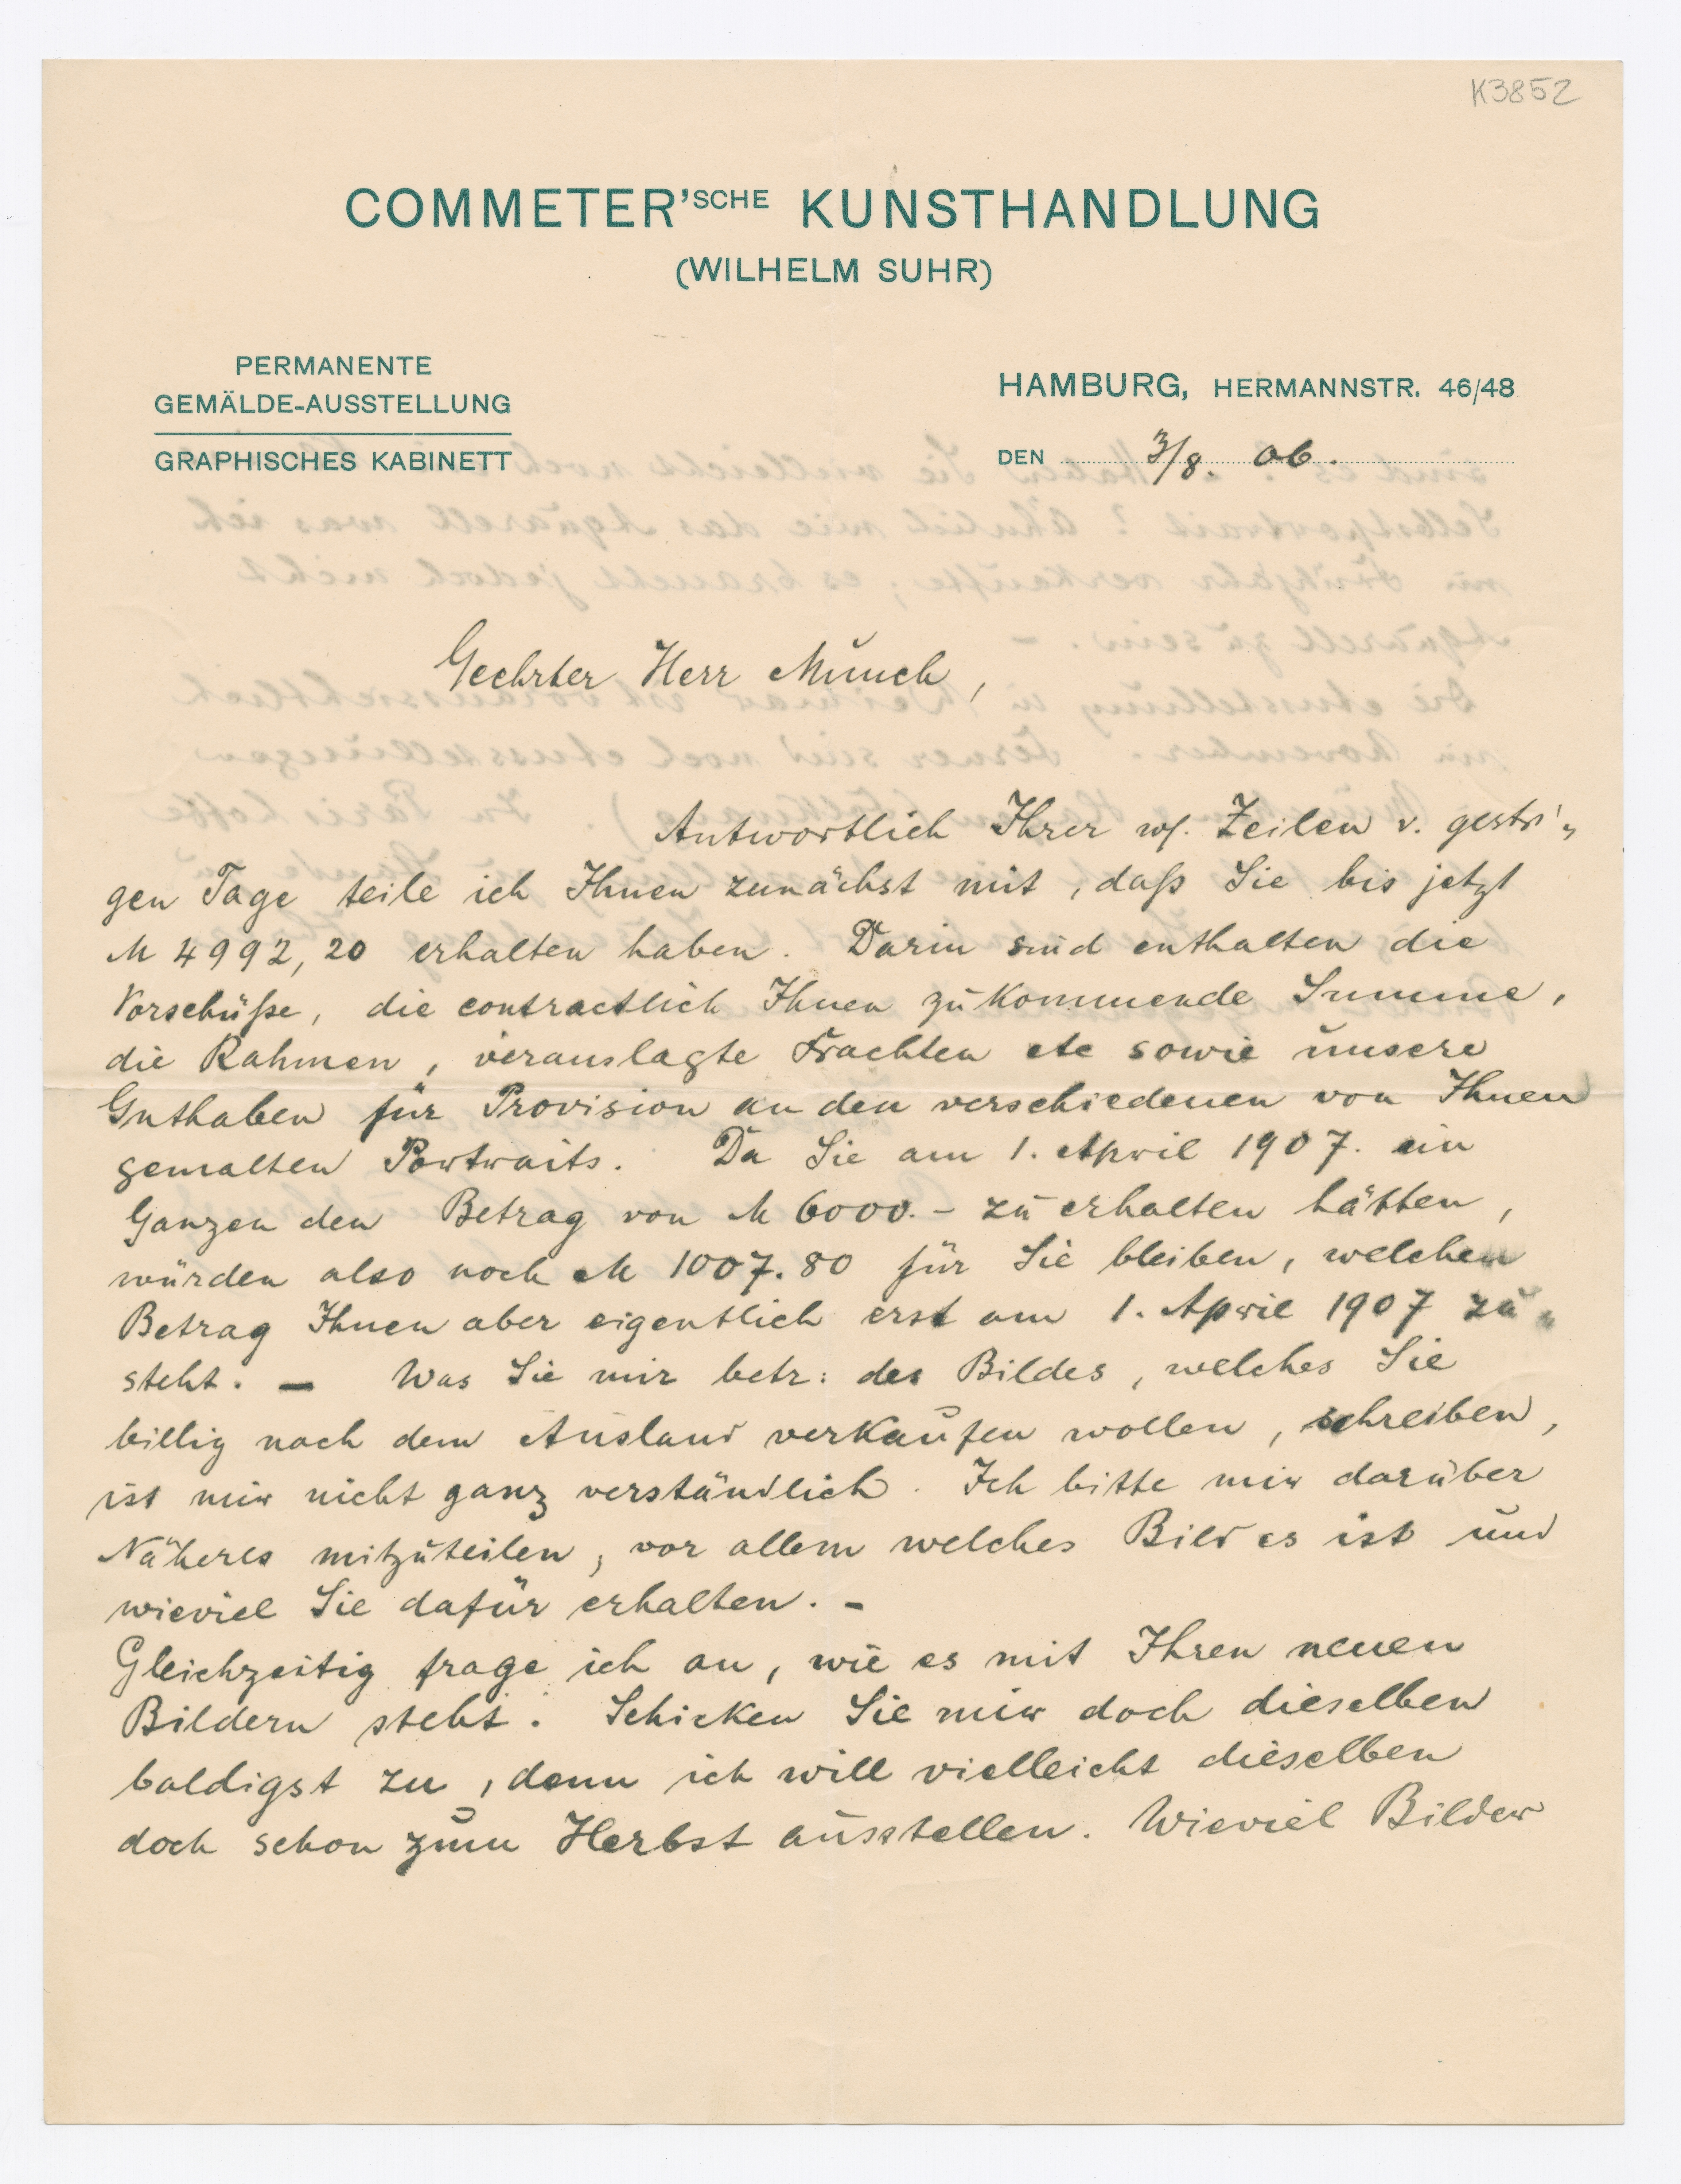 K3852
COMMETER'SCHE KUNSTHANDLUNG
(WILHELM SUHR)
PERMANENTE
GEMÄLDE-AUSSTELLUNG
GRAPHISCHES KABINETT
HAMBURG, HERMANNSTR. 46/48
DEN 3/8. 06.
Geehrter Herr Munch,
Antwortlich Ihrer w/. Zeilen v. gestri„
gen Tage teile ich Ihnen zunächst mit, daß Sie bis jetzt
M 4992,20 erhalten haben. Darin sind enthalten die
Vorschüße, die contractlich Ihnen zukommende Summe,
die Rahmen, verauslagte Frachten etc sowie unsere
Guthaben für Provision an den verschiedenen von Ihnen
gemalten Portraits. Da Sie am 1. April 1907. ein
Ganzen den Betrag von M 6000.- zu erhalten hätten,
würden also noch M 1007.80 für Sie bleiben, welchen
Betrag Ihnen aber eigentlich erst am 1. April 1907 zu„
steht. — Was Sie mir betr: des Bildes, welches Sie
billig nach dem Ausland verkaufen wollen, schreiben,
ist mir nicht ganz verständlich. Ich bitte mir darüber
Näheres mitzuteilen, vor allem welches Bild es ist und
wieviel Sie dafür erhalten. -
Gleichzeitig frage ich an, wie es mit Ihren neuen
Bildern steht. Schicken Sie mir doch dieselben
baldigst zu, denn ich will vielleicht dieselben
doch schon zum Herbst ausstellen. Wieviel Bilder